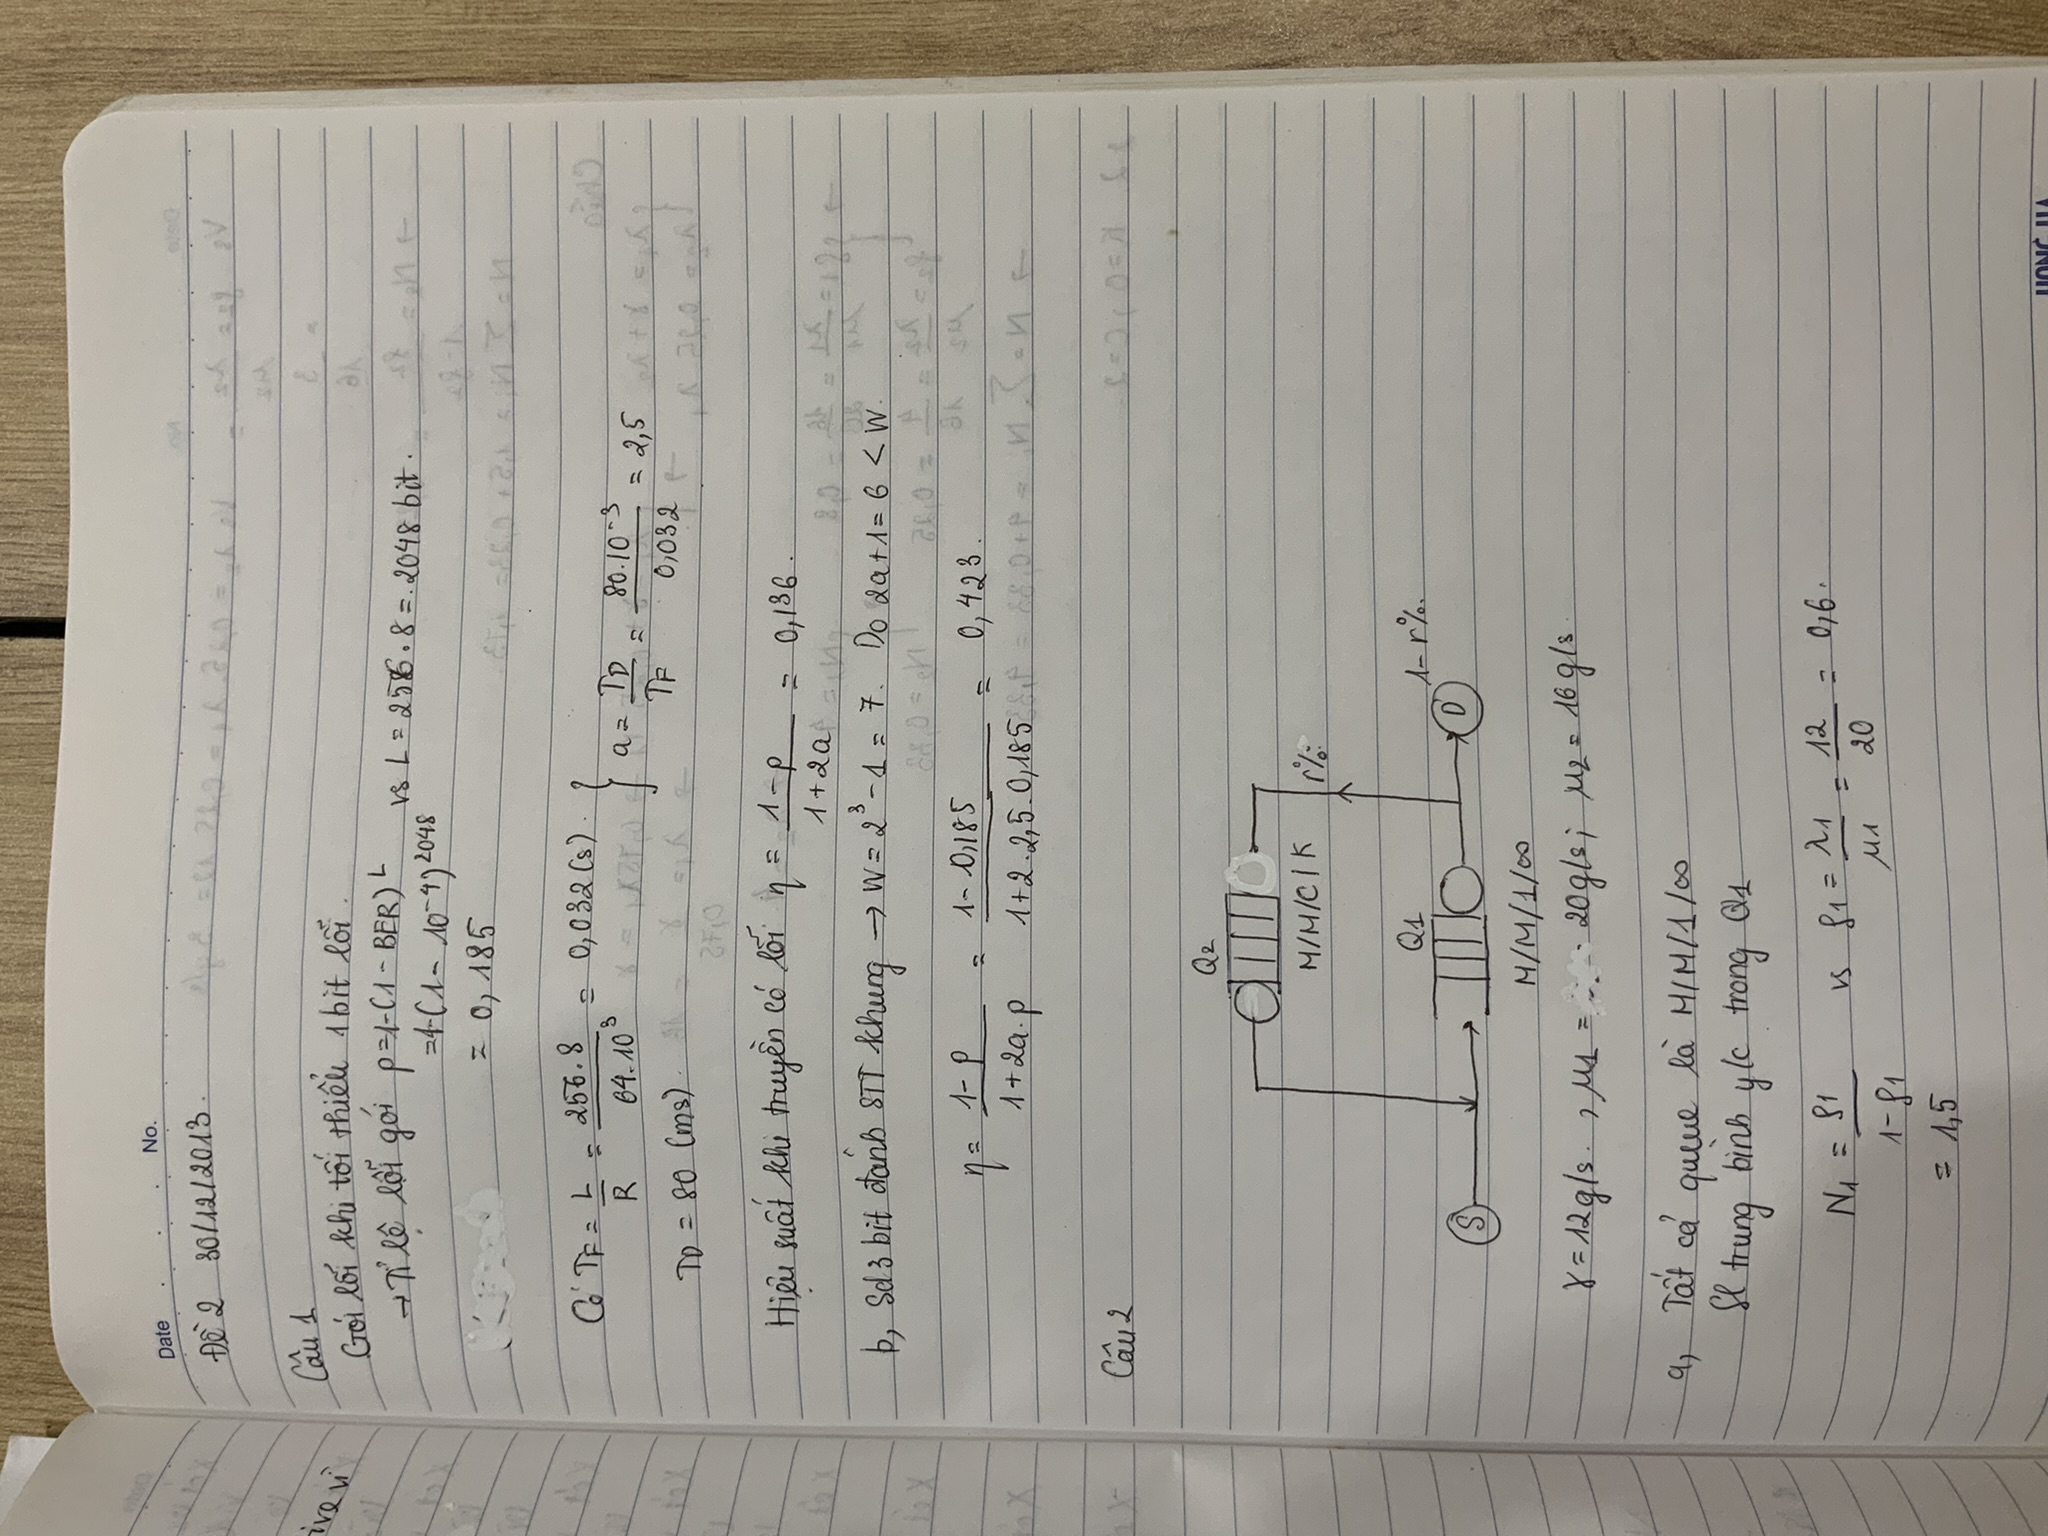 Date . . . No.
Đề 2 30/12/2013.
Câu 1
Gói lỗi khi tối thiểu 1 bit lỗi.
→ Tỉ lệ lỗi gói p = 1-(1 - BER)^L vs L = 256.8 = 2048 bit.
= 1-(1 - 10^-4)^2048
= 0,185
Có TF = L/R = 256.8/64.10^3 = 0,032 (s). } a = TD/TF = 80.10^-3/0,032 = 2,5
TD = 80 (ms).
Hiệu suất khi truyền có lỗi η = 1-p/1+2a = 0,136.
b, Sd 3 bit đánh STT khung → W = 2^3 - 1 = 7. Do 2a+1 = 6 < W.
η = 1-p/1+2a.p = 1-0,185/1+2.2,5.0,185 = 0,423.
Câu 2
Q2
M/M/C/K
r%
Q1
1-r%.
S
D
M/M/1/∞
γ = 12g/s. , μ1 = 20g/s; μ2 = 16g/s.
a, Tất cả queue là M/M/1/∞
Sl trung bình y/c trong Q1
N1 = ρ1/1-ρ1 vs ρ1 = λ1/μ1 = 12/20 = 0,6.
= 1,5
HONG HA